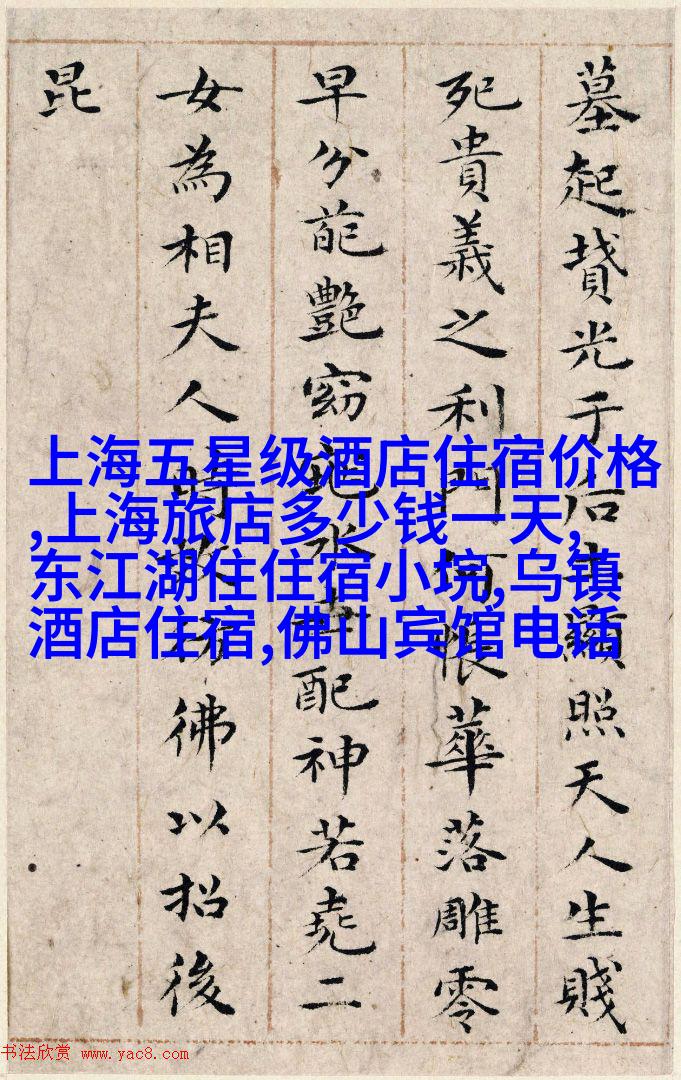 墓起墳光于后土顯照天人生賤
死貴義之利門何悵華落雕零
早分葩艷窈窕永世配神若堯二
女為相夫人時效彷彿以招後
昆
上海五星级酒店住宿价格
,上海旅店多少钱一天,
东江湖住住宿小垸,乌镇
酒店住宿,佛山宾馆电话
书法欣赏 www.yac8.com